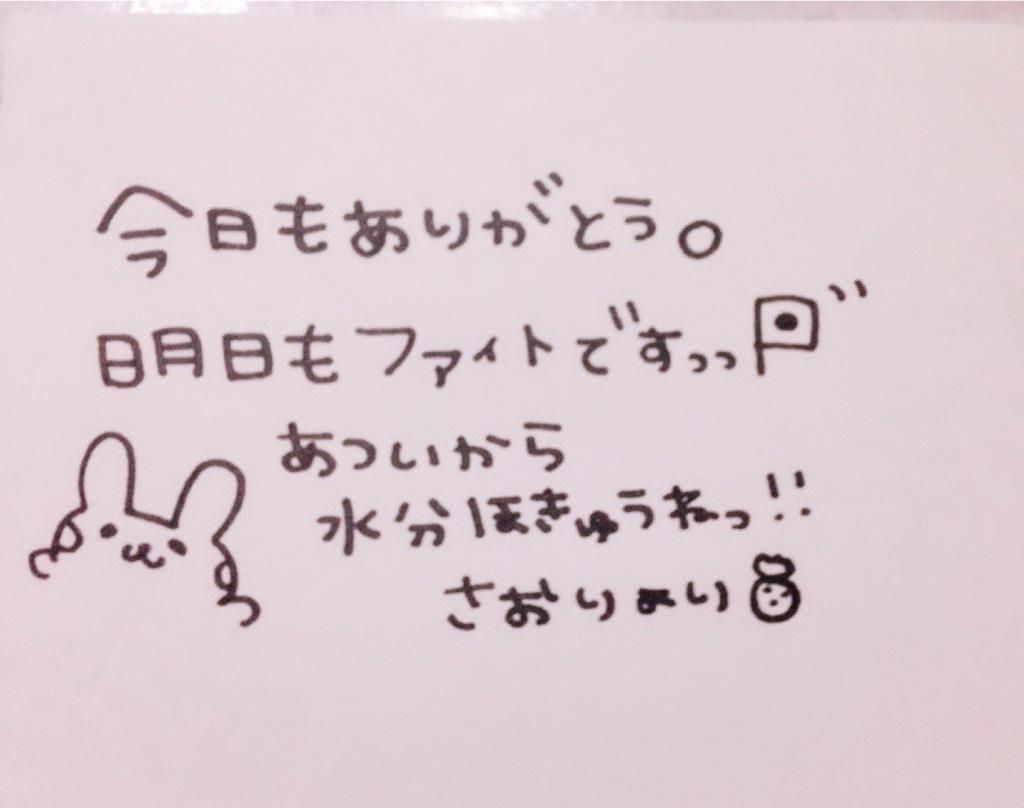 今日もありがとう。
明日もファイトですっっ
あついから
水分ほきゅうねっ!!
さおりより